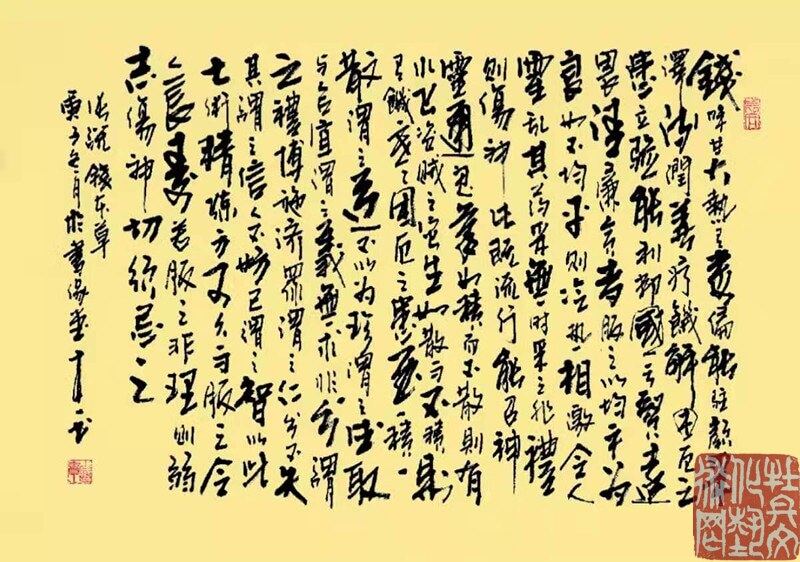 錢味甘大熱有毒偏能駐顏采
澤流潤善疗饑解困厄之
患立驗能利邦國亏賢達
畏清廉貪者服之以均平为
良如不均平則冷热相激令人
霍乱其药采無时采之非禮
則傷神此既流行能召神
靈通鬼氣如積而不散則有
水火盗贼之灾生如散而不積則
有饑寒困厄之患至一積一
散謂之道不以为珍謂之德取
与合宜謂之義無求非分謂
之禮博施濟眾謂之仁出不失
其謂之信入不妨己謂之智以此
七術精炼方可久而服之令
人長寿若服之非理則弱
志傷神切須忌之
張說錢本草
庚子冬月於書